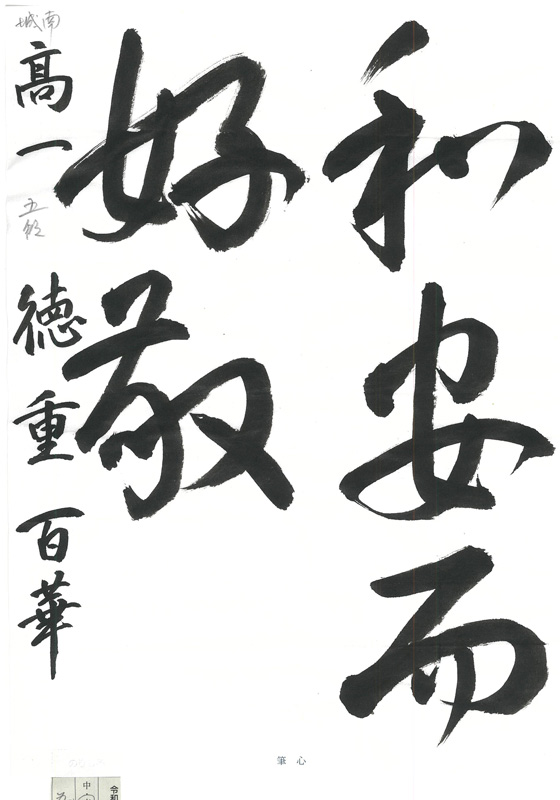 和安而
好敬
城南
高一 五段 德重百華
筆心
令和
中